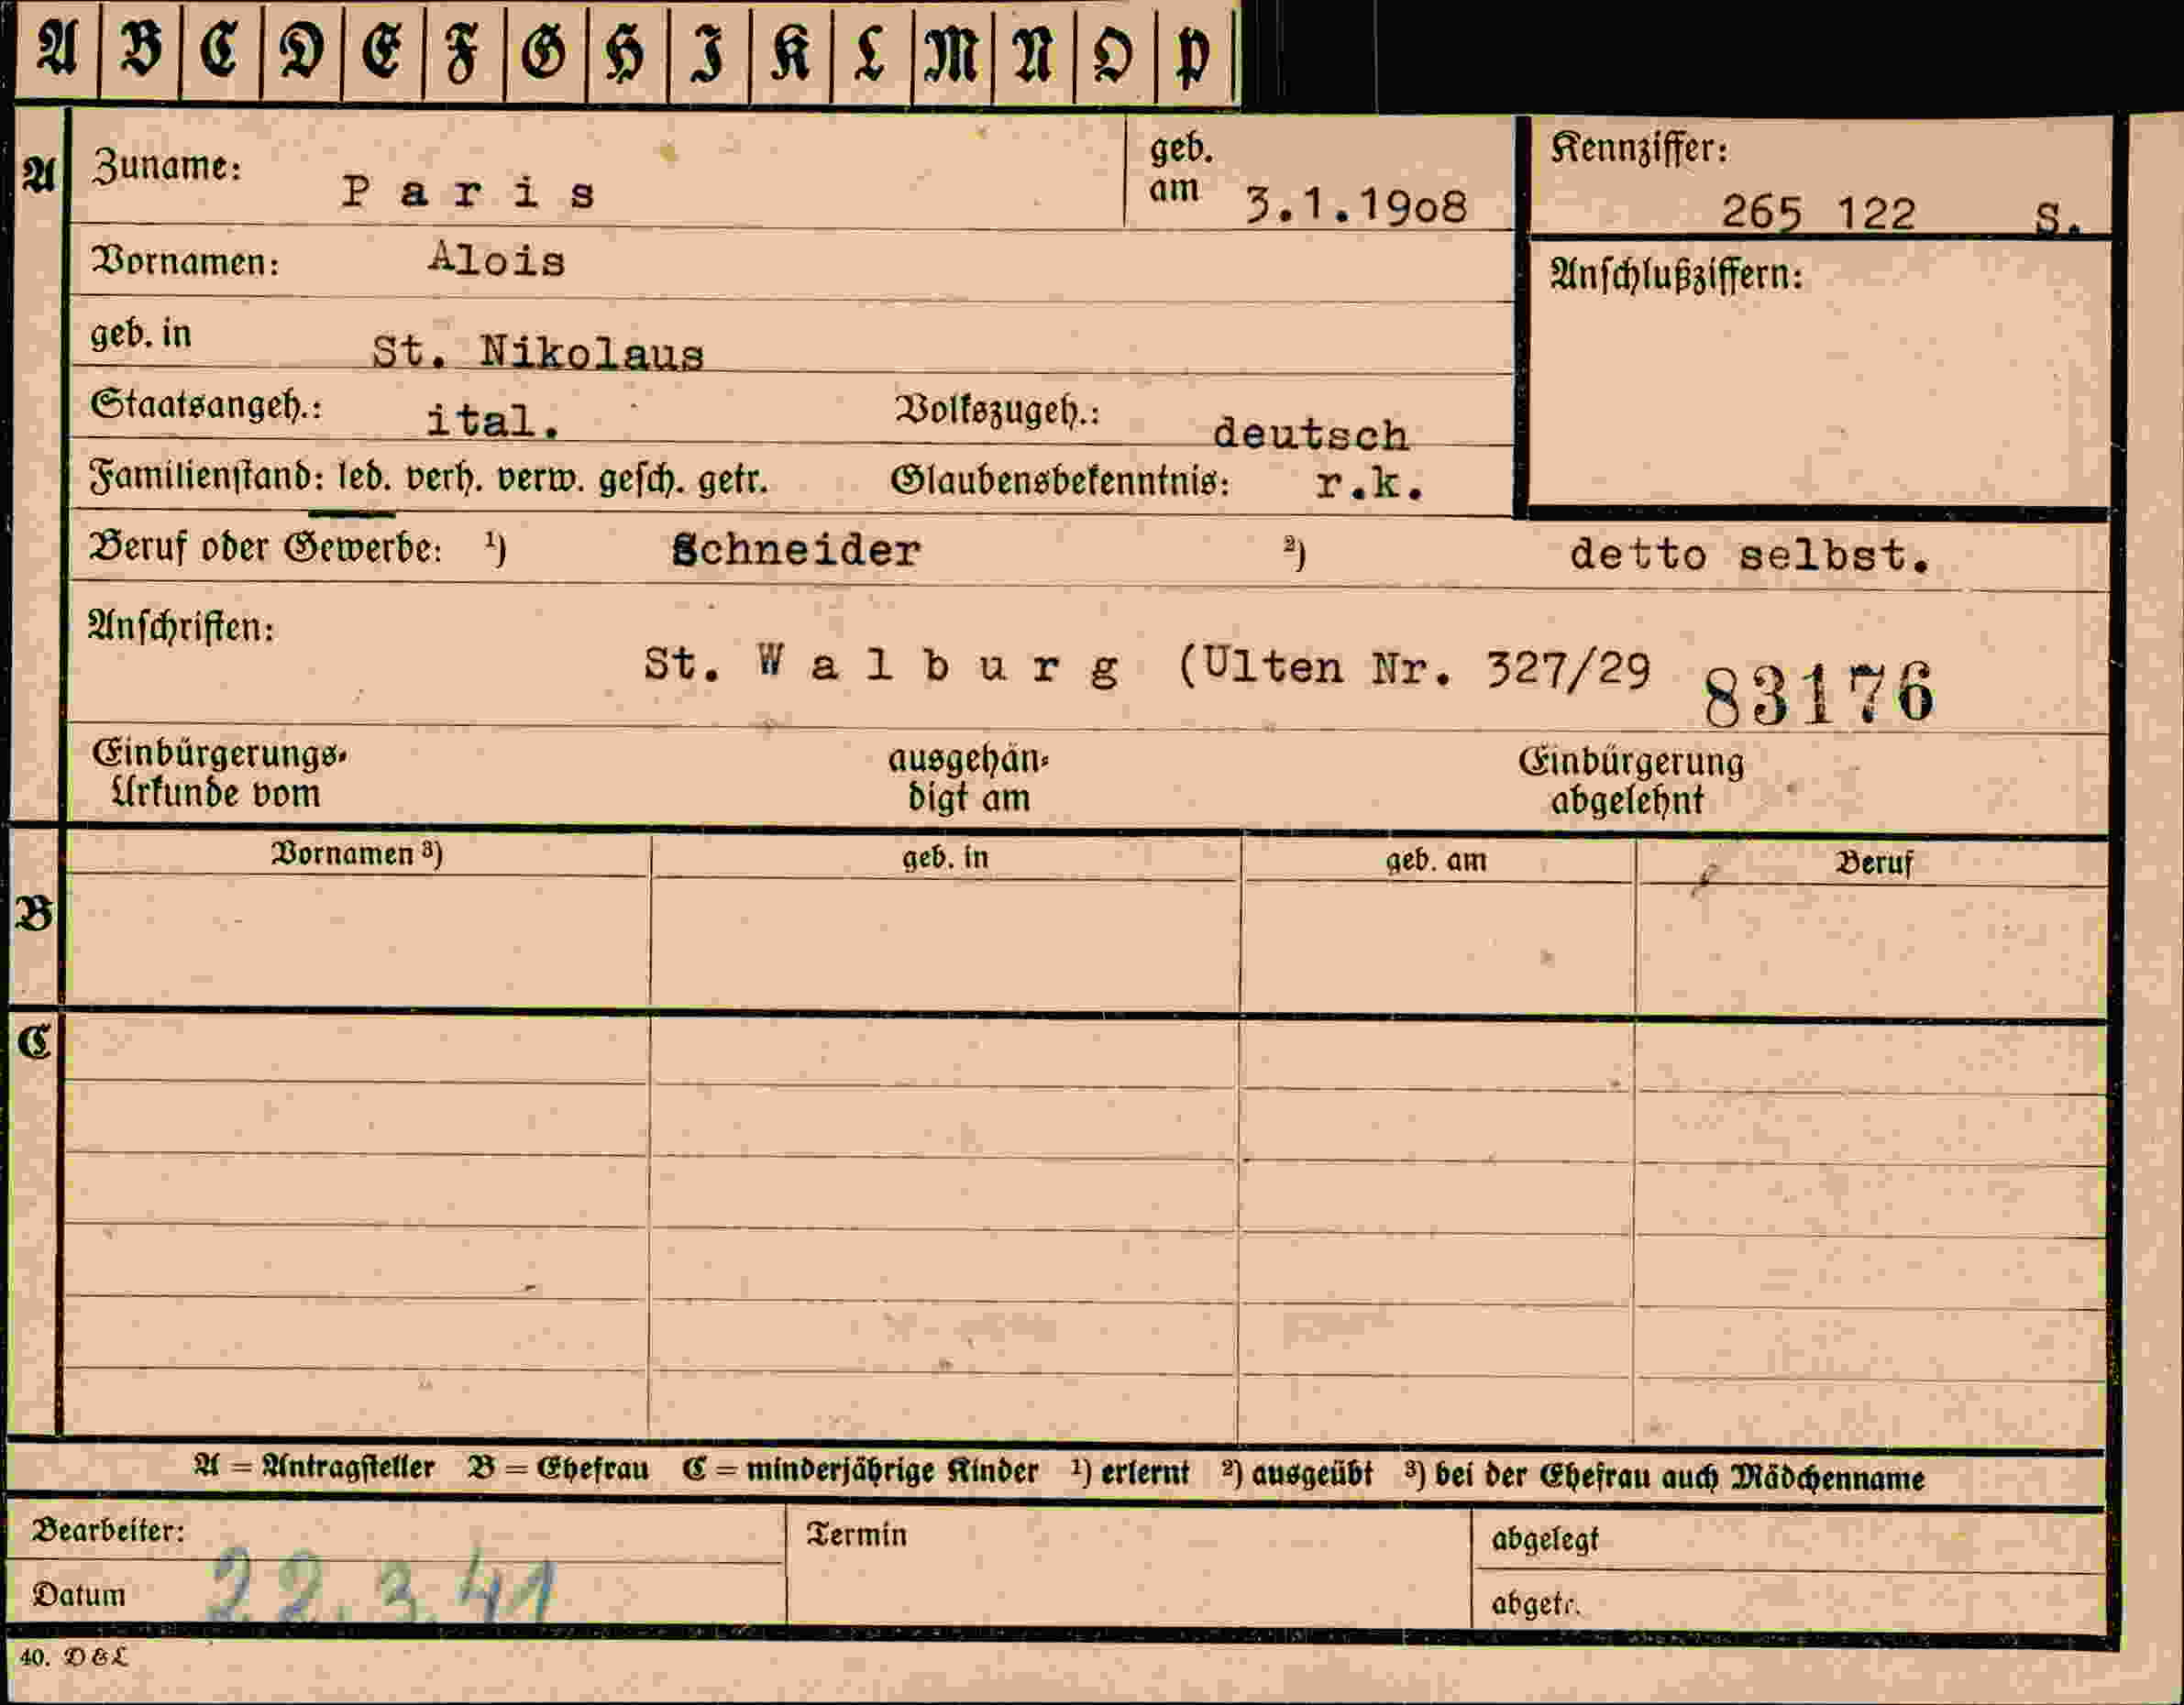 A B C D E F G H I K L M N O P
A Zuname: Paris geb. am 3.1.1908 Kennziffer: 265 122 S.
Vornamen: Alois Anschlußziffern:
geb. in St. Nikolaus
Staatsangeh.: ital. Volkszugeh.: deutsch
Familienstand: led. verh. verw. gesch. getr. Glaubensbekenntnis: r.k.
Beruf oder Gewerbe: ¹) Schneider ²) detto selbst.
Anschriften: St. Walburg (Ulten Nr. 327/29 83176
Einbürgerungs- ausgehän- Einbürgerung
Urkunde vom digt am abgelehnt
Vornamen ³) geb. in geb. am Beruf
B
C
A = Antragsteller B = Ehefrau C = minderjährige Kinder ¹) erlernt ²) ausgeübt ³) bei der Ehefrau auch Mädchenname
Bearbeiter: Termin abgelegt
Datum 22.3.41 abgetr.
40. D & L